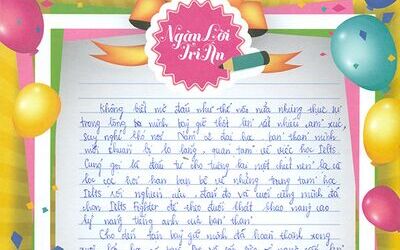 Ngàn Lời
Tri Ân
Không biết mở đầu như thế nào nữa nhưng thực sự
trong lòng ta mình bây giờ thật lắm rất nhiều cảm xúc,
suy nghĩ Năm 2 đại học bản thân mình
mới chuẩn bị lo lắng, quan tâm về việc học Ielts
Cũng gọi là đầu tư cho tương lai một chút nên là cô
lọc cọc hỏi han bạn bè về những trung tâm học
Ielts rồi nghiên cứu, đắn đo và cuối cùng mình đã
chọn Ielts Fighter để theo đuổi khát khao nâng cao
kỹ năng tiếng anh của bản thân.
Cho đến tận bây giờ mình đã hoàn thành xong